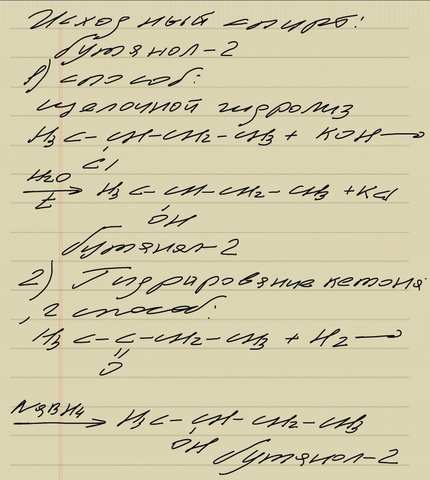 Исходный спирт:
бутанол-2
1) способ:
щелочной гидролиз
H₃C-CH-CH₂-CH₃ + KOH →
Cl
H₂O
t → H₃C-CH-CH₂-CH₃ + KCl
OH
бутанол-2
2) Гидрирование кетона
, 2 способ:
H₃C-C-CH₂-CH₃ + H₂ →
O
NaBH₄ → H₃C-CH-CH₂-CH₃
OH бутанол-2